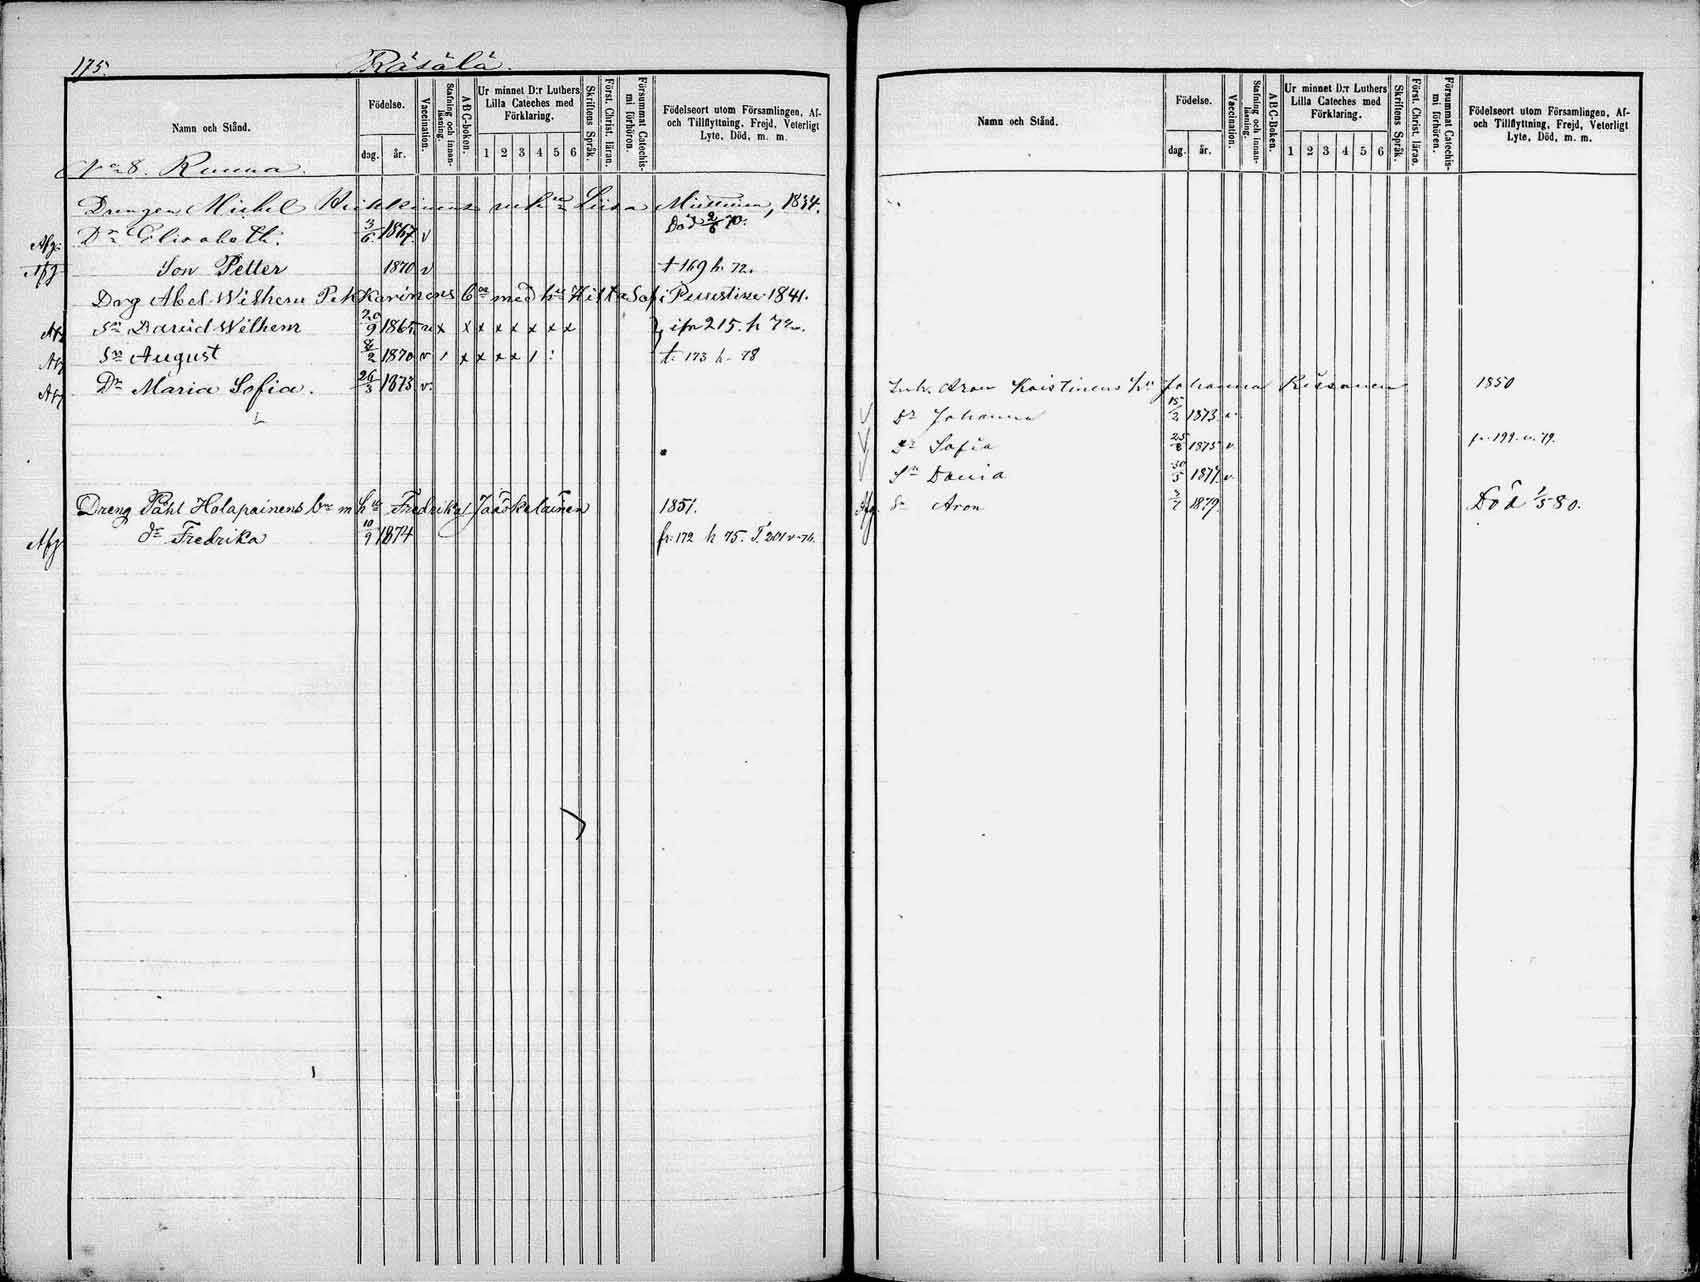 175.
Räsälä.
Namn och Stånd.
Födelse.
dag.
år.
Vaccination.
Stafning och innan-läsning.
ABC-boken.
Ur minnet D:r Luthers Lilla Cateches med Förklaring.
1 2 3 4 5 6
Skriftens Språk.
Först. Christ. läran.
Försummat Catechis-mi förhören.
Födelseort utom Församlingen, Af- och Tillflyttning, Frejd, Veterligt Lyte, Död, m. m.
No 8. Runna.
Drengen Michel hu Lisa 1834.
Afg. Dr Elisabeth. 3/6 1867. v Död 2/6 70.
Afg Son Petter 1870 v t 169 h. 72.
Drg Abel Wilhem Pekkarinens bn med hu Sof. 1841.
Afg Sn David Wilhem 20/9 1865 x x x x x x x x ifr 215. h 72.
Afg Sn August 8/2 1870 v / x x x x / : t. 173 h. 78
Afg Dr Maria Sofia. 26/3 1873 v.
Dreng Påhl Holapainens bn m hu Fredrika Jääskeläinen 1851.
Afg dr Fredrika 10/9 1874 fr. 172 h 75. T. 201 v. 76.
Namn och Stånd.
Födelse.
dag.
år.
Vaccination.
Stafning och innan-läsning.
ABC-boken.
Ur minnet D:r Luthers Lilla Cateches med Förklaring.
1 2 3 4 5 6
Skriftens Språk.
Först. Christ. läran.
Försummat Catechis-mi förhören.
Födelseort utom Församlingen, Af- och Tillflyttning, Frejd, Veterligt Lyte, Död, m. m.
Inh. Aron Kristinens hu Johanna Rissanen 1850
Dr Johanna 15/2 1873 v.
Dr Sofia 1875 v. fr. 199. v. 79.
Sn 30/5 1877. v.
Afg. S Aron 1879. Död 1/5 80.